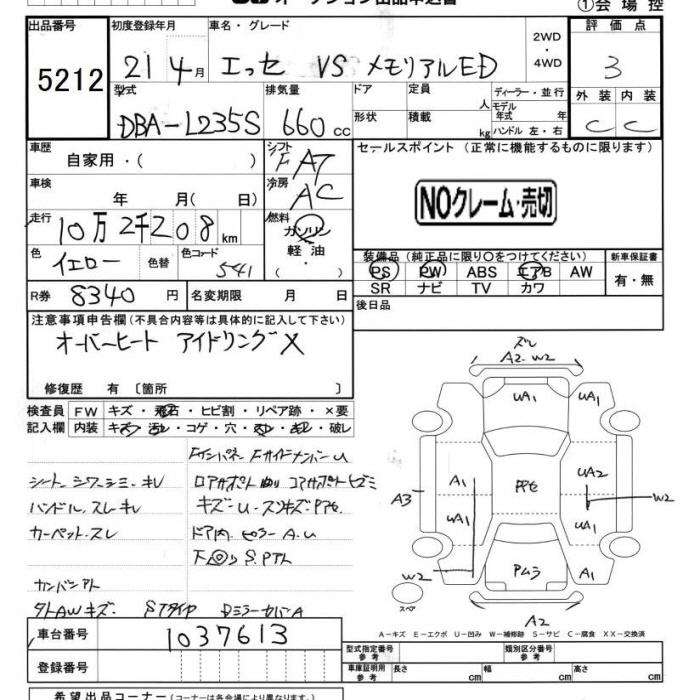 オークション出品申込書
①会場控
出品番号 初度登録年月 車名・グレード 2WD・4WD 評価点
5212 21 4月 エッセ VS メモリアルED 3
型式 排気量 ドア 定員 人 ディーラー・並行 外装 内装
DBA-L235S 660cc 形状 積載 kg モデル年式 年 ハンドル 左・右 C C
車歴 自家用・( ) シフト FAT セールスポイント (正常に機能するものに限ります)
車検 年 月( 日) 冷房 AC
NOクレーム・売切
走行 10万2千208km 燃料 ガソリン
色 イエロー 色替 色コード 541 軽油・( )
装備品 (純正品に限り○をつけてください) 新車保証書
PS PW ABS エアB AW 有・無
SR ナビ TV カワ
R券 8340円 名変期限 月 日
後日品
注意事項申告欄 (不具合内容等は具体的に記入して下さい)
オーバーヒート アイドリングX
修復歴 有 〔箇所 〕
検査員 FW キズ・飛石・ヒビ割・リペア跡・×要
記入欄 内装 キズ・汚レ・コゲ・穴・スレ・キレ・破レ
シート シワ シミ キレ
ハンドル スレ キレ キズ-U
カーペット スレ ドア内 ピラー A.U
カンバンアト
タトAWキズ Sタイヤ DミラーカバーA
ズレ
A2.W2
UA1 UA1
A3 A1 UA2 W2
UA1 UA1
W2 A1
スペア A2
A-キズ E-エクボ U-凹み W-補修跡 S-サビ C-腐食 XX-交換済
車台番号 1037613
型式指定番号 参考 類別区分番号 参考
登録番号 車庫証明用 参考 長さ cm 幅 cm 高さ cm
希望出品コーナー (コーナーは各会場により異なります)